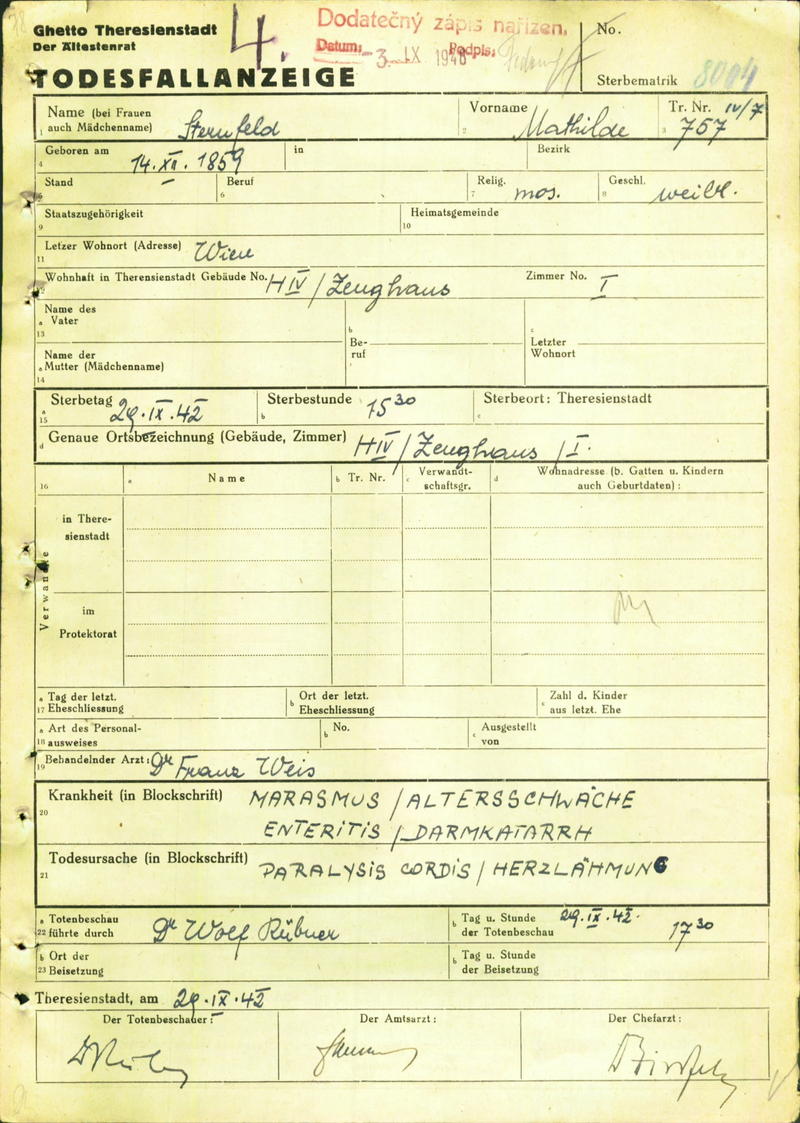 Ghetto Theresienstadt
Der Ältestenrat
4.
Dodatečný zápis nařízen.
Datum: 3 IX 1948 Podpis:
No.
TODESFALLANZEIGE
Sterbematrik 8004
Name (bei Frauen auch Mädchenname) Sternfeld
1
Vorname Mathilde
2
Tr. Nr. IV/7
3 757
Geboren am 14.XII.1859 in Bezirk
4
Stand – Beruf Relig. mos. Geschl. weibl.
6 7 8
Staatszugehörigkeit Heimatsgemeinde
9 10
Letzer Wohnort (Adresse) Wien
11
Wohnhaft in Theresienstadt Gebäude No. H IV / Zeughaus Zimmer No. I
Name des
a Vater
13
b Be-
ruf
c Letzter
Wohnort
Name der
a Mutter (Mädchenname)
14
Sterbetag 29.IX.42 Sterbestunde 15 30 Sterbeort: Theresienstadt
a 15 b c
d Genaue Ortsbezeichnung (Gebäude, Zimmer) H IV / Zeughaus / I.
16 a Name b Tr. Nr. c Verwandt-
schaftsgr. d Wohnadresse (b. Gatten u. Kindern
auch Geburtdaten):
Verwandte
in There-
sienstadt
im
Protektorat
a Tag der letzt.
17 Eheschliessung
b Ort der letzt.
Eheschliessung
c Zahl d. Kinder
aus letzt. Ehe
a Art des Personal-
18 ausweises
b No.
c Ausgestellt
von
19 Behandelnder Arzt: Dr Franz Weis
Krankheit (in Blockschrift) MARASMUS / ALTERSSCHWÄCHE
20 ENTERITIS / DARMKATARRH
Todesursache (in Blockschrift) PARALYSIS CORDIS / HERZLÄHMUNG
21
a Totenbeschau
22 führte durch Dr Wolf Rübner
b Tag u. Stunde
der Totenbeschau 29.IX.42. 17 30
b Ort der
23 Beisetzung
b Tag u. Stunde
der Beisetzung
Theresienstadt, am 29.IX.42
Der Totenbeschauer: Der Amtsarzt: Der Chefarzt: